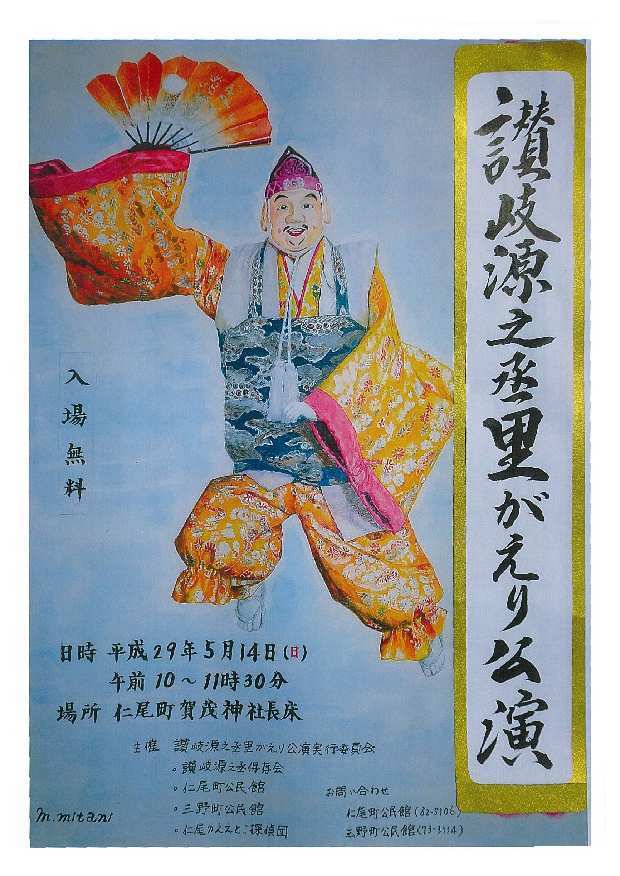 讃岐源之丞里がえり公演
入場無料
日時 平成29年5月14日(日)
午前10〜11時30分
場所 仁尾町賀茂神社長床
主催 讃岐源之丞里がえり公演実行委員会
。讃岐源之丞保存会
。仁尾町公民館
。三野町公民館
。仁尾のええとこ探偵団
お問い合わせ
仁尾町公民館(82-5106)
三野町公民館(73-3114)
m.mitani